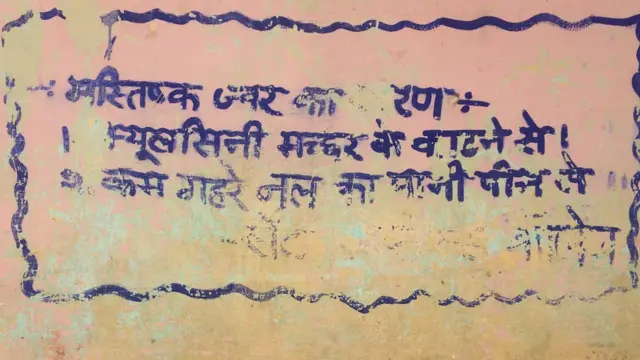 मस्तिष्क ज्वर का कारण ÷
१ क्यूलसिनी मच्छर के काटने से।
२ कम गहरे नल का पानी पीने से